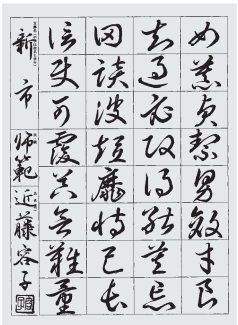 女慕貞絜男效才良
知過必改得能莫忘
罔談彼短靡恃己長
信使可覆器欲難量
新市 師範 近藤容子